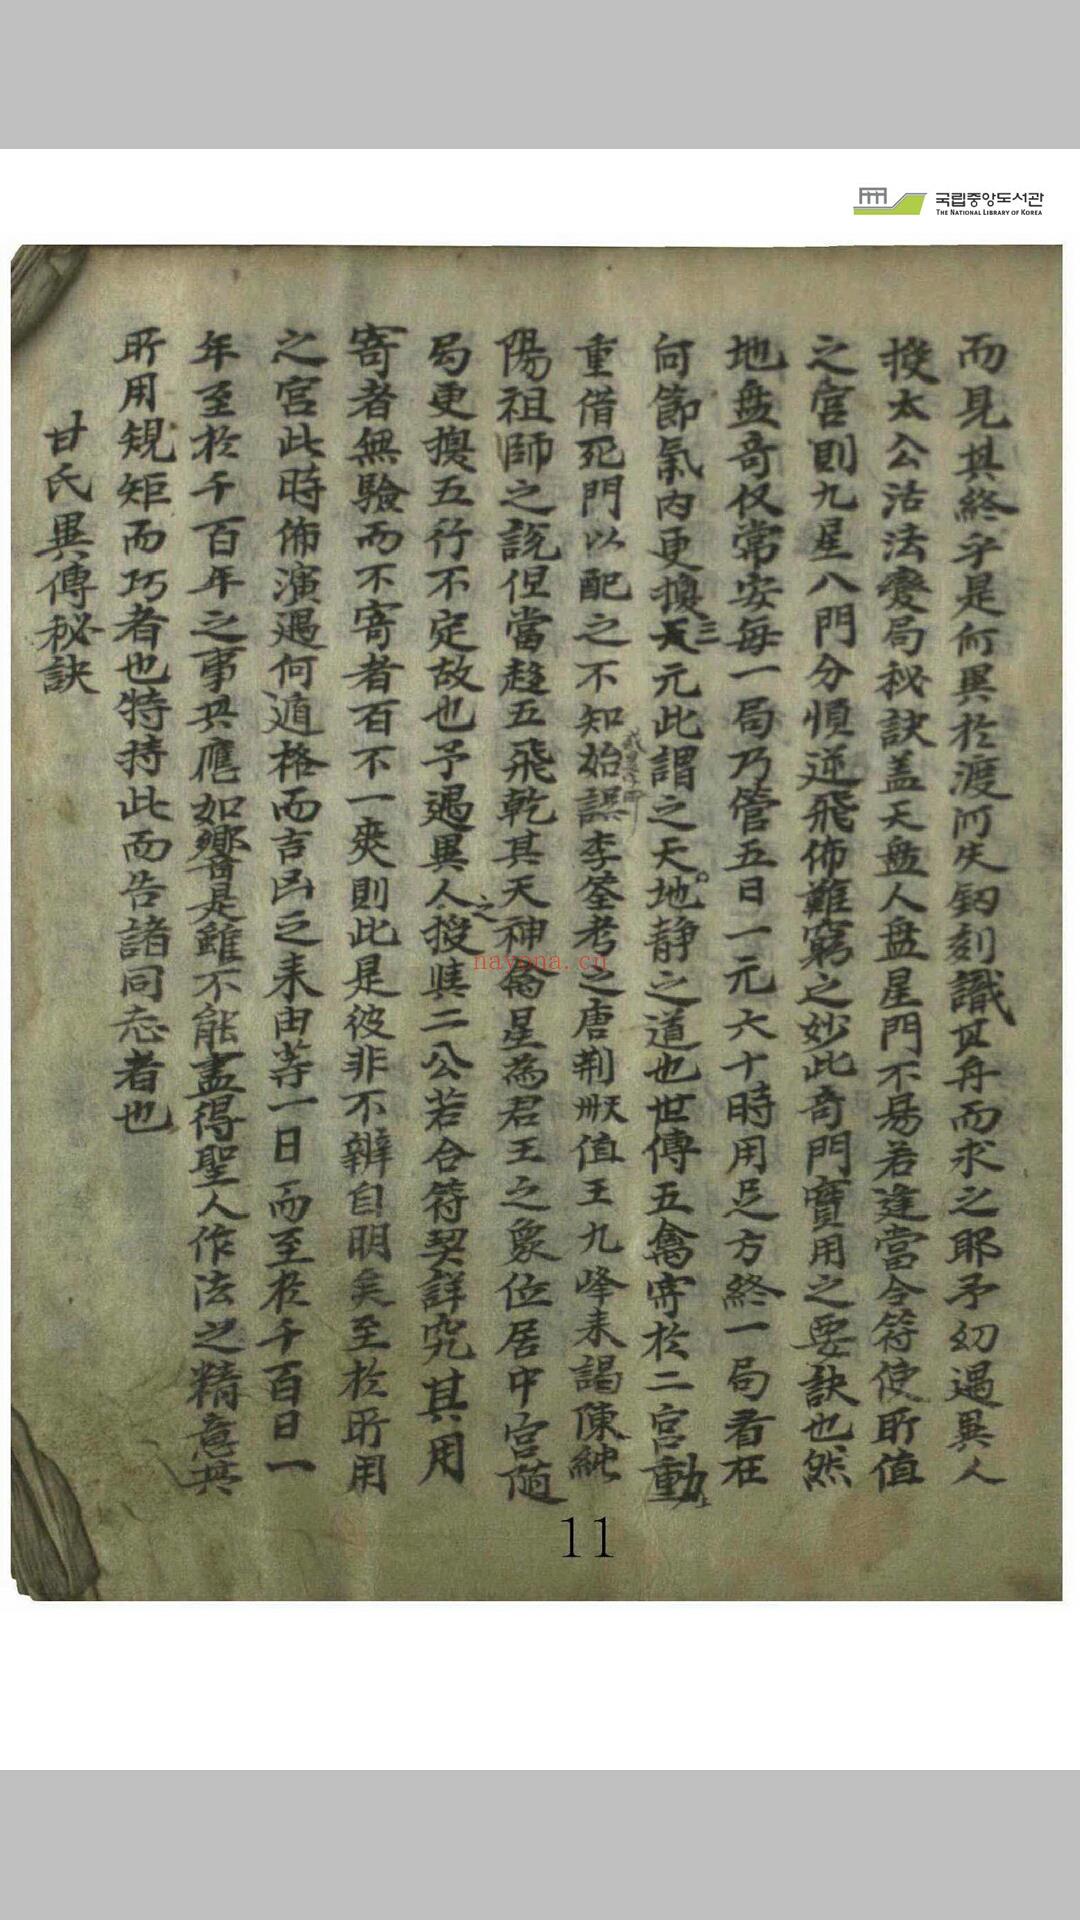 국립중앙도서관
THE NATIONAL LIBRARY OF KOREA
而見其終乎是何異於渡河失釼刻識其舟而求之耶予幼遇異人
授太公活法奏局秘訣盖天盘人盘星門不易若逢當令符使所值
之宫則九星八門分順逆飛佈難窮之妙此奇門寶用之要訣也然
地盘奇仅常安每一局乃管五日一元六十時用足方終一局看在
何節氣內更換三元此謂之天地静之道也世傳五禽寄於二宫動
重借死門以配之不知始誤李筌考之唐荆州值王九峰来謁陳純
陽祖師之説但當趍五飛乾其天神禽星為君王之象位居中宫随
局更換五行不定故也予遇異人之授與二公若合符契詳究其用
寄者無驗而不寄者百不一爽則此是彼非不辨自明矣至於所用
之宫此時佈演遇何遁格而吉凶之来由等一日而至於千百日一
年至於千百年之事其應如響是雖不能盡得聖人作法之精意其
所用規矩而巧者也特持此而告諸同志者也
甘氏異傳秘訣
nayona.cn
11